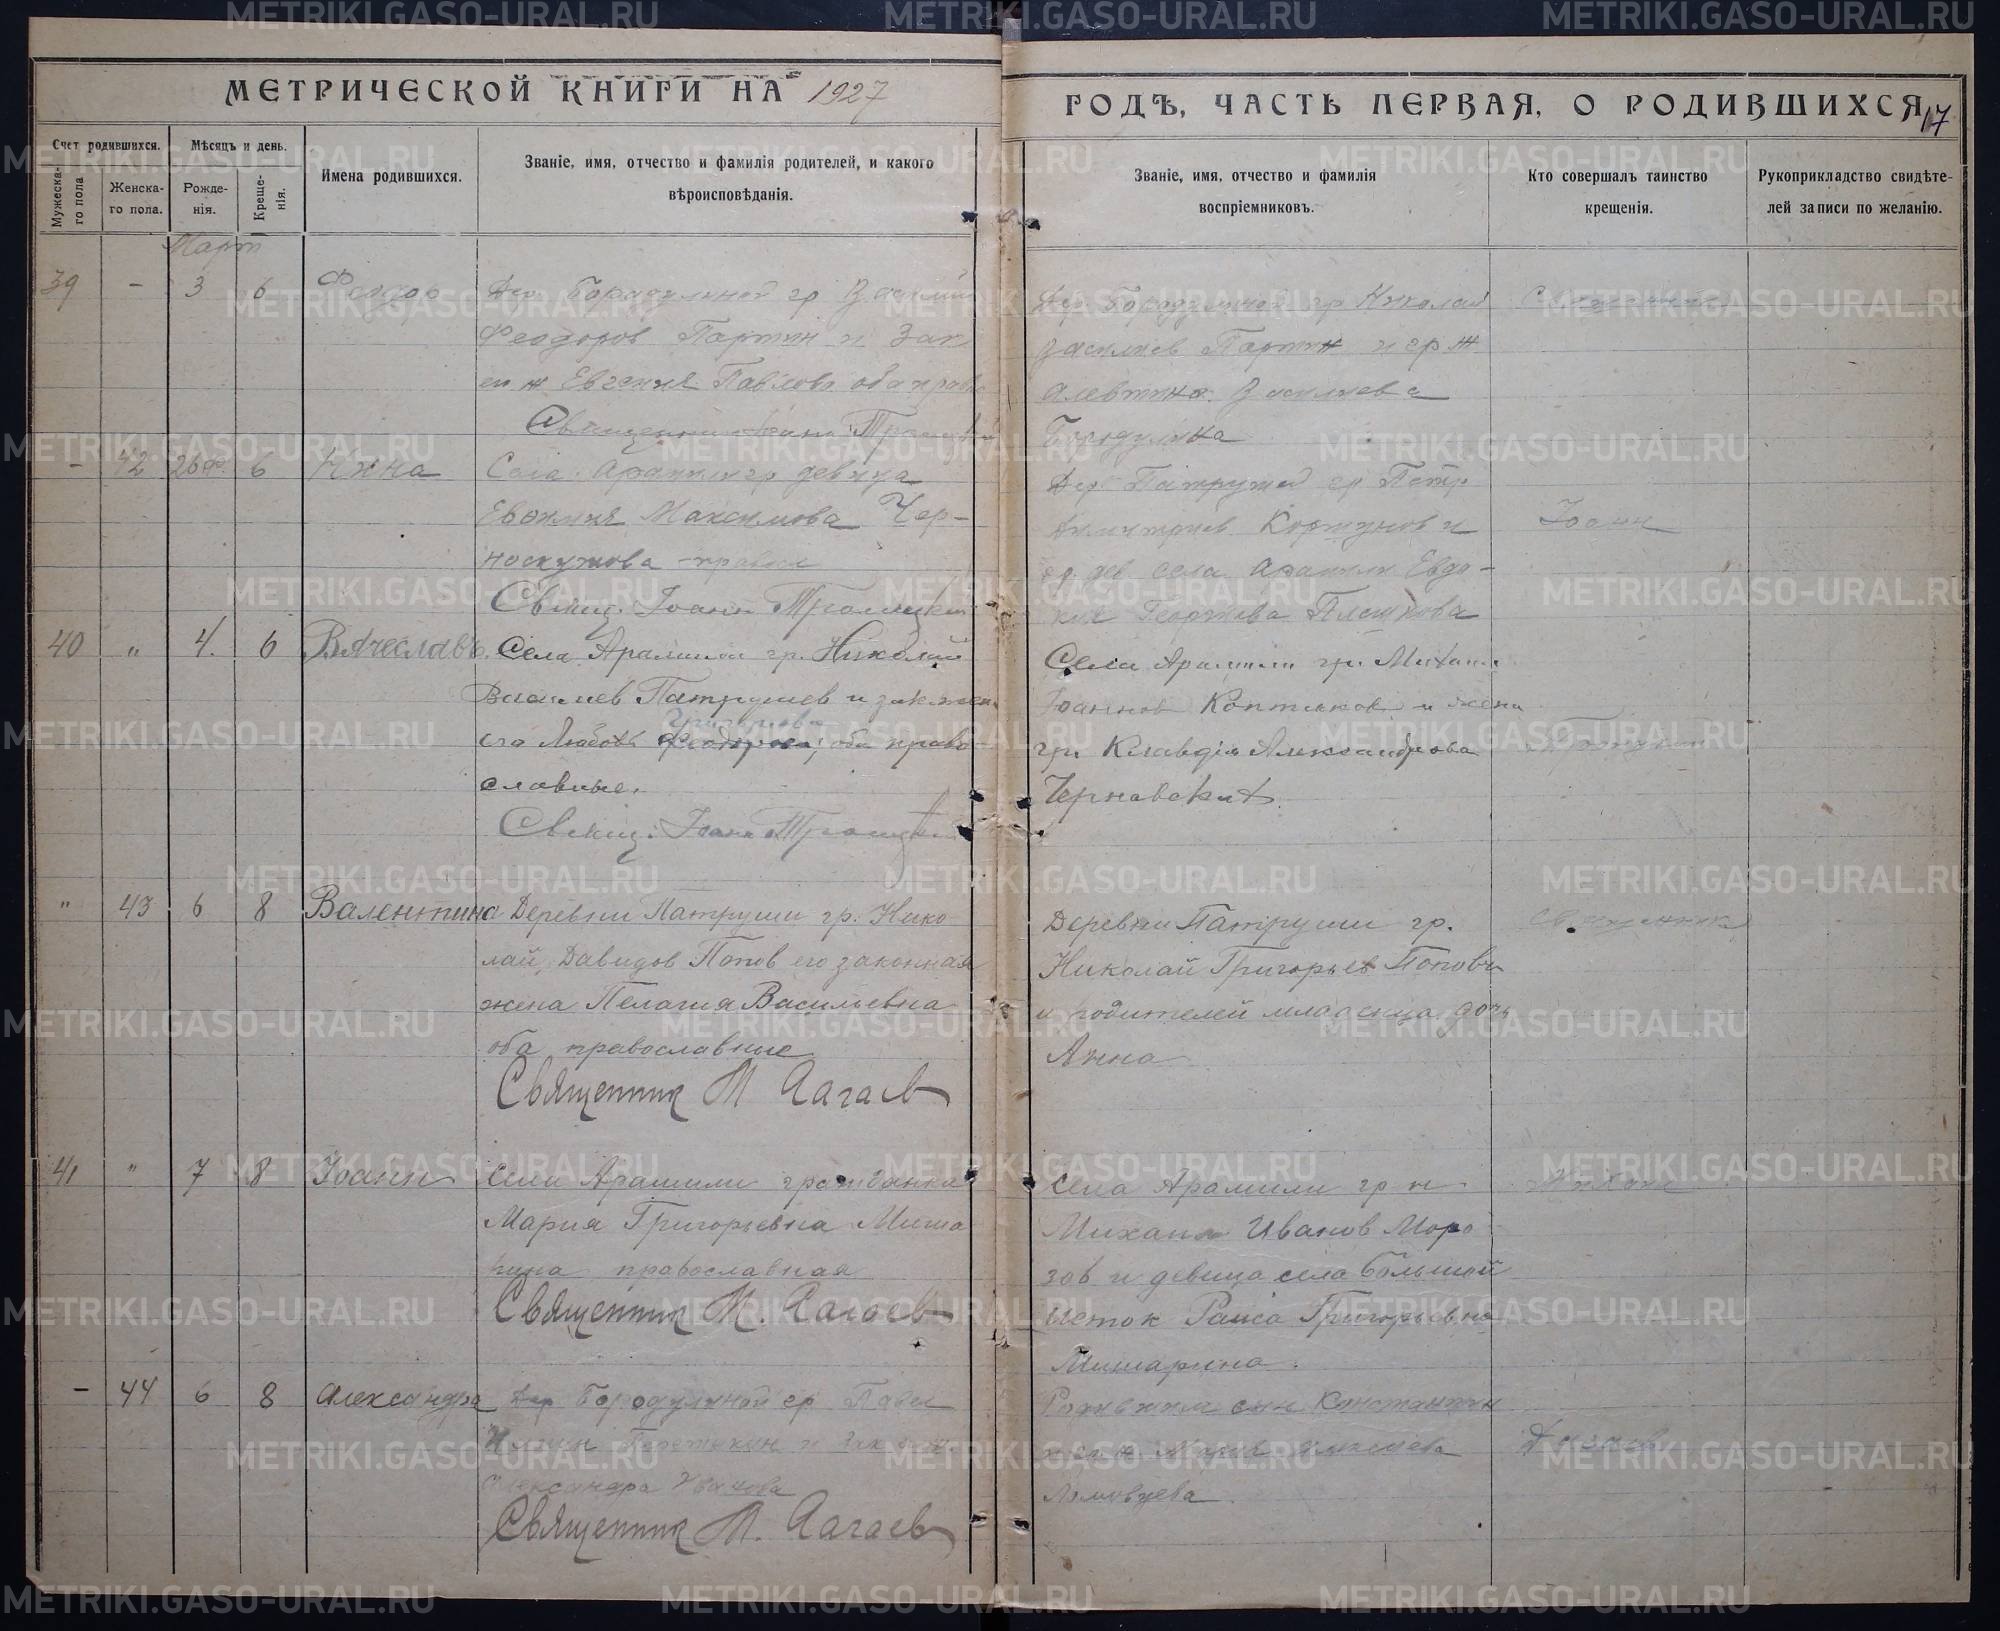 МЕТРИЧЕСКОЙ КНИГИ НА 1927
ГОДЪ, ЧАСТЬ ПЕРВАЯ, О РОДИВШИХСЯ
17
Счет родившихся.
Мѣсяцъ и день.
Имена родившихся.
Званіе, имя, отчество и фамилія родителей, и какого
вѣроисповѣданія.
Мужеска-
го пола
Женска-
го пола.
Рожде-
нія.
Креще-
нія.
Званіе, имя, отчество и фамилія
воспріемниковъ.
Кто совершалъ таинство
крещенія.
Рукоприкладство свидѣте-
лей записи по желанію.
Март
39 - 3 6 Феодор
Дер. Бородулиной гр Василий
Феодоров Партин и зак
ен ж Евгения Павлова оба правос
Священник Іоанн Троицкий
Дер. Бородулиной гр Николай
Василиев Партин и гр ж
Алевтина Василиева
Бородулина
Священник
- 42 26ф. 6 Нина
Села Арамили гр девица
Евфимия Максимова Чер-
носкутова - правосл
Свящ. Іоанн Троицкий
Дер Патрушей гр Петр
Димитриев Коржунов и
гр. дев села Арамили Евдо-
кия Георгиева Плешкова
Іоанн
40 " 4. 6 Вячеславъ.
Села Арамили гр. Николай
Василиев Патрушев и зак. жен
его Любовь Феодорова, оба право-
Григориева
славные.
Свящ. Іоанн Троицкий
Села Арамили гр. Михаил
Іоаннов Коптяков и жена
гр. Клавдія Александрова
Черновских.
Троицкий
" 43 6 8 Валентина
Деревни Патруши гр. Нико
лай Давидов Попов его законная
жена Пелагия Васильевна
оба православные
Священник М Агаев
Деревни Патруши гр.
Николай Григорьев Попов
и родителей младенца дочь
Анна
Священник
41 " 7 8 Іоанн
Села Арамили гражданка
Мария Григорьевна Миша
рина православная
Священник М. Агаев
Села Арамили гр н
Михаил Иванов Моро
зов и девица села Большой
Исток Раиса Григорьевна
Мишарина.
- 44 6 8 Александра
Дер Бородулиной гр Павел
и зак ж.
Александра Иванова
Священник М. Агаев
сын Константин
Ломовцева
METRIKI.GASO-URAL.RU